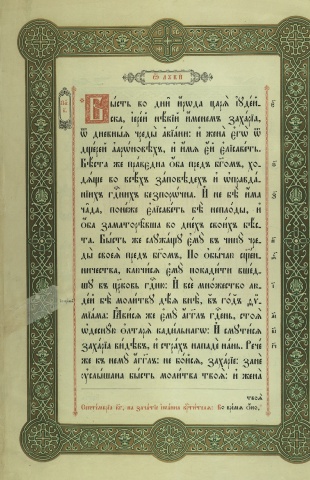 Ѿ лꙋки
Бы́сть во дни̑ и҆́рѡда царѧ̀ і҆ꙋде́й-
ска, і҆ере́й нѣ́кїй и҆́менемъ заха́рїа,
ѿ дне́вныѧ чреды̀ а҆вїа́ни: и҆ жена̀ є҆гѡ̀ ѿ
дще́рей а҆арѡ́новѣхъ, и҆ и҆́мѧ є҆́й є҆лїсаве́тъ.
Бѣ́ста же пра́ведна ѻ҆́ба пред̾ бг҃омъ, хо-
дѧ́ще во всѣ́хъ за́повѣдехъ и҆ ѡ҆правда́-
нїихъ гдⷭ҇нихъ безпоро́чна. И҆ не бѣ̀ и҆́ма
ча́да, поне́же є҆лїсаве́тъ бѣ̀ непло́ды, и҆
ѻ҆́ба заматорѣ̑вша во дне́хъ свои́хъ бѣ́-
ста. Бы́сть же слꙋжа́щꙋ є҆мꙋ̀ въ чи́нꙋ чре-
ды̀ своеѧ̀ пред̾ бг҃омъ, По ѻ҆бы́чаю сщ҃ен-
ничества, ключи́сѧ є҆мꙋ̀ покади́ти вше́д-
шꙋ въ це́рковь гдⷭ҇ню: И҆ всѐ мно́жество лю-
де́й бѣ̀ моли́твꙋ дѣ́ѧ внѣ̀, въ го́дъ ѳѷ-
мїа́ма: И҆ви́сѧ же є҆мꙋ̀ а҆́гг҃лъ гдⷭ҇нь, стоѧ̀
ѡ҆деснꙋ́ю ѻ҆лтарѧ̀ кади́льнагѡ: И҆ смꙋти́сѧ
заха́рїа ви́дѣвъ, и҆ стра́хъ нападѐ на́нь. Рече́
же къ немꙋ̀ а҆́гг҃лъ: не бо́йсѧ, заха́рїе: занѐ
ᲂу҆слы́шана бы́сть моли́тва твоѧ̀: и҆ жена̀
твоѧ̀
Септе́мврїа кг҃, на зача́тїе і҆ѡа́нна крⷭ҇ти́телѧ: Во вре́мѧ ѻ҆́но,